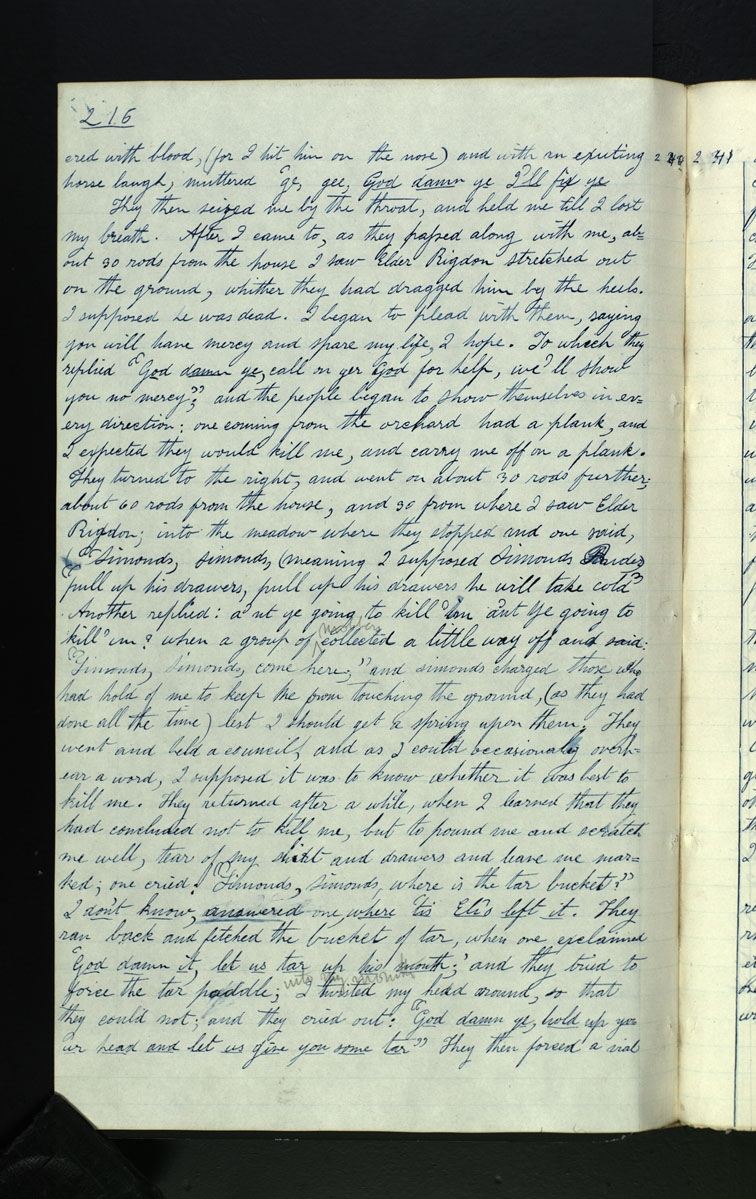 216
ered with blood, (for I hit him on the nose) and with an exulting
horse laugh, muttered "ge, gee, God damn ye I'll fix ye
They then seized me by the throat, and held me till I lost
my breath. After I came to, as they passed along with me, ab=
out 30 rods from the house I saw Elder Rigdon stretched out
on the ground, whither they had dragged him by the heels.
I supposed he was dead. I began to plead with them, saying
you will have mercy and spare my life, I hope. To which they
replied "God damn ye, call on yer God for help, we'll show
you no mercy"; and the people began to show themselves in ev=
ery direction: one coming from the orchard had a plank, and
I expected they would kill me, and carry me off on a plank.
They turned to the right, and went on about 30 rods further;
about 60 rods from the house, and 30 from where I saw Elder
Rigdon; into the meadow where they stopped and one said,
"Simonds, simonds, (meaning I supposed Simonds Rider)
pull up his drawers, pull up his drawers he will take cold"
Another replied: a'nt ye going to kill 'im a'nt ye going to
kill 'im? when a group of mobbers collected a little way off and said:
"Simonds, simonds, come here;" and simonds charged those who
had hold of me to keep me from touching the ground, (as they had
done all the time) lest I should get a spring upon them. They
went and held a council, and as I could occasionally overh=
ear a word, I supposed it was to know whether it was best to
kill me. They returned after a while, when I learned that they
had concluded not to kill me, but to pound me and scratch
me well, tear of my shirt and drawers and leave me mar=
ked; one cried: "Simonds, simonds, where is the tar bucket?"
I don't know, answered one, where 'tis Eli's left it. They
ran back and fetched the bucket of tar, when one exclaimed
"God damn it, let us tar up his mouth;" and they tried to
force the tar paddle into my mouth; I twisted my head around, so that
they could not; and they cried out: "God damn ye, hold up yo=
ur head and let us give you some tar" They then forced a vial